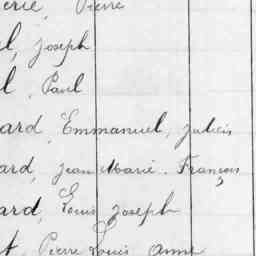 erie, Pierre
l, Joseph
l, Paul
ard, Emmanuel, Julien
ard, Jean Marie. François
ard, Louis Joseph
t, Pierre Louis Anne